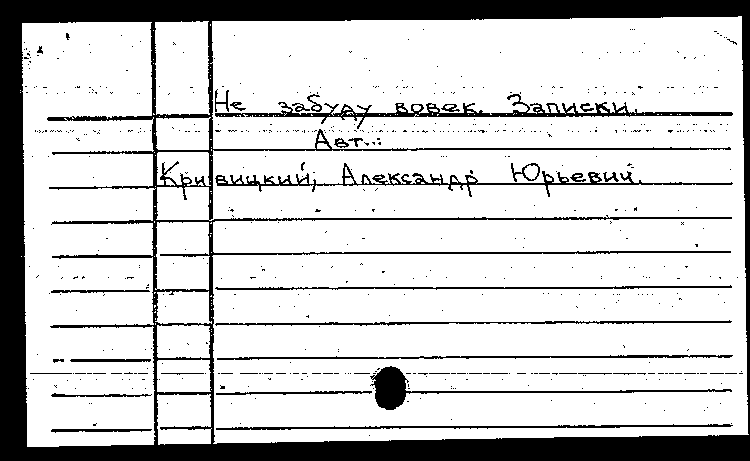 Не забуду вовек. Записки.
Авт.:
Кривицкий, Александр Юрьевич.